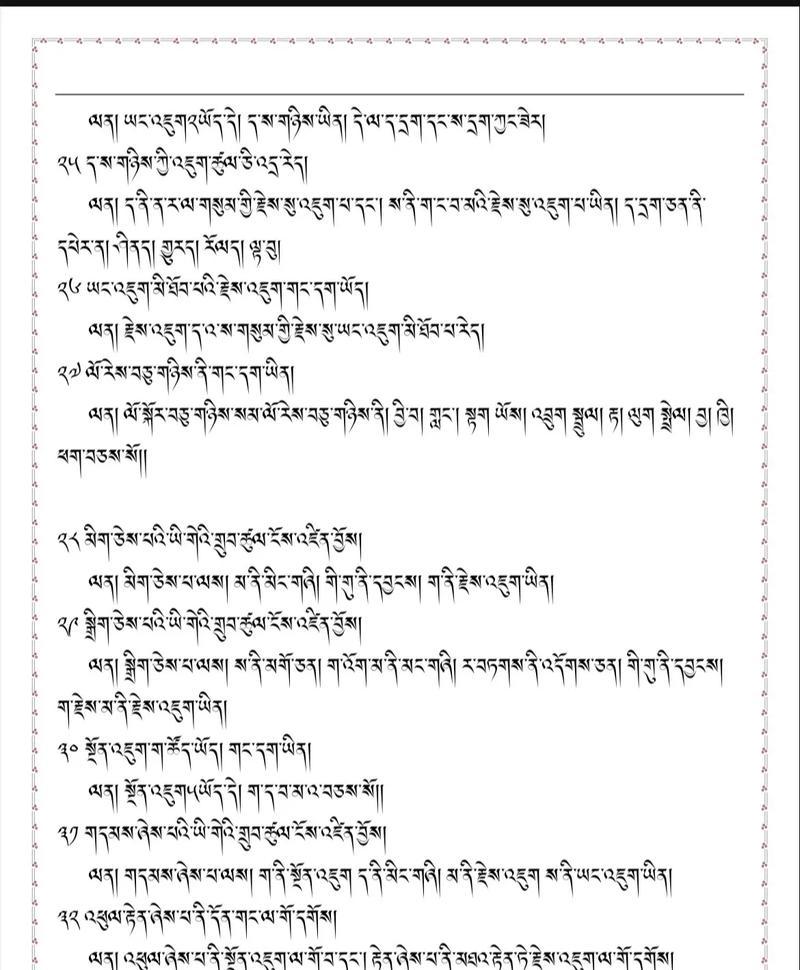 ལན། ཡང་འཇུག༢ཡོད་དེ། ད་ས་གཉིས་ཡིན། དེ་ལ་ད་དྲག་དང་ས་དྲག་ཀྱང་ཟེར།
༢༥ ད་ས་གཉིས་ཀྱི་འཇུག་ཚུལ་ཅི་འདྲ་རེད།
ལན། ད་ནི་ན་ར་ལ་གསུམ་གྱི་རྗེས་སུ་འཇུག་པ་དང་། ས་ནི་ག་ང་བ་མའི་རྗེས་སུ་འཇུག་པ་ཡིན། ད་དྲག་ཅན་ནི་
དཔེར་ན། ཤིནད། གྱུརད། རོལད། ལྟ་བུ།
༢༦ ཡང་འཇུག་མི་ཐོབ་པའི་རྗེས་འཇུག་གང་དག་ཡོད།
ལན། རྗེས་འཇུག་ད་འ་ས་གསུམ་གྱི་རྗེས་སུ་ཡང་འཇུག་མི་ཐོབ་པ་རེད།
༢༧ ལོ་རེས་བཅུ་གཉིས་ནི་གང་དག་ཡིན།
ལན། ལོ་སྐོར་བཅུ་གཉིས་སམ་ལོ་རེས་བཅུ་གཉིས་ནི། བྱི་བ། གླང་། སྟག ཡོས། འབྲུག སྦྲུལ། རྟ། ལུག སྤྲེལ། བྱ། ཁྱི།
ཕག་བཅས་སོ།།
༢༨ མིག་ཅེས་པའི་ཡི་གེའི་གྲུབ་ཚུལ་ངོས་འཛིན་བྱོས།
ལན། མིག་ཅེས་པ་ལས། མ་ནི་མིང་གཞི། གི་གུ་ནི་དབྱངས། ག་ནི་རྗེས་འཇུག་ཡིན།
༢༩ སྒྲིག་ཅེས་པའི་ཡི་གེའི་གྲུབ་ཚུལ་ངོས་འཛིན་བྱོས།
ལན། སྒྲིག་ཅེས་པ་ལས། ས་ནི་མགོ་ཅན། ག་འོག་མ་ནི་མང་གཞི། ར་བཏགས་ནི་འདོགས་ཅན། གི་གུ་ནི་དབྱངས།
ག་རྗེས་མ་ནི་རྗེས་འཇུག་ཡིན།
༣༠ སྔོན་འཇུག་ག་ཚོད་ཡོད། གང་དག་ཡིན།
ལན། སྔོན་འཇུག༥ཡོད་དེ། ག་ད་བ་མ་འ་བཅས་སོ།།
༣༡ གདམས་ཞེས་པའི་ཡི་གེའི་གྲུབ་ཚུལ་ངོས་འཛིན་བྱོས།
ལན། གདམས་ཞེས་པ་ལས། ག་ནི་སྔོན་འཇུག ད་ནི་མིང་གཞི། མ་ནི་རྗེས་འཇུག ས་ནི་ཡང་འཇུག་ཡིན།
༣༢ འཕུལ་རྟེན་ཞེས་པ་ནི་དོན་གང་ལ་གོ་དགོས།
ལན། འཕུལ་ཞེས་པ་ནི་སྔོན་འཇུག་ལ་གོ་བ་དང་། རྟེན་ཞེས་པ་ནི་མཐའ་རྟེན་ཏེ་རྗེས་འཇུག་ལ་གོ་དགོས།